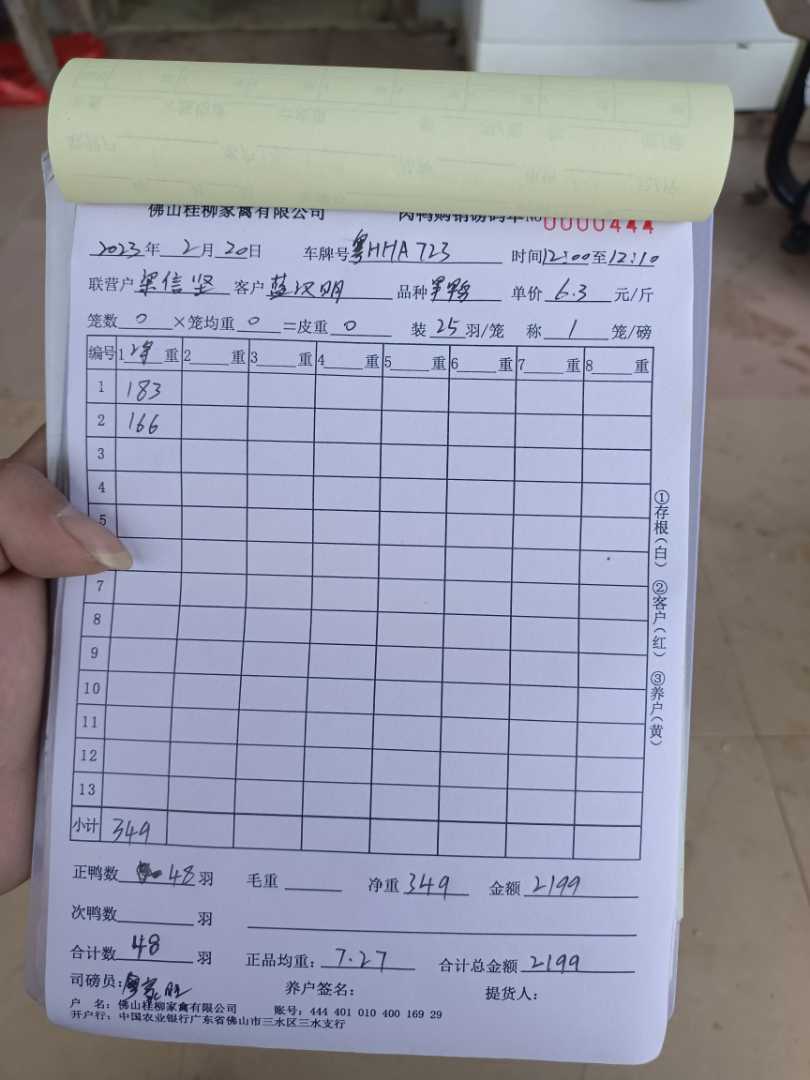 佛山桂柳家禽有限公司 肉鸭购销磅码单 No 0000444
2023年 2月 20日 车牌号 粤HHA723 时间 12:00 至 12:10
联营户 梁信坚 客户 蓝汉明 品种 单价 6.3 元/斤
笼数 0 ×笼均重 0 =皮重 0 装 25 羽/笼 称 1 笼/磅
编号 1 净 重 2 重 3 重 4 重 5 重 6 重 7 重 8 重
1 183
2 166
3
4
5
7
8
9
10
11
12
13
小计 349
正鸭数 48 羽 毛重 净重 349 金额 2199
次鸭数 羽
合计数 48 羽 正品均重: 7.27 合计总金额 2199
司磅员: 养户签名: 提货人:
户 名: 佛山桂柳家禽有限公司 账号: 444 401 010 400 169 29
开户行: 中国农业银行广东省佛山市三水区三水支行
①存根(白) ②客户(红) ③养户(黄)